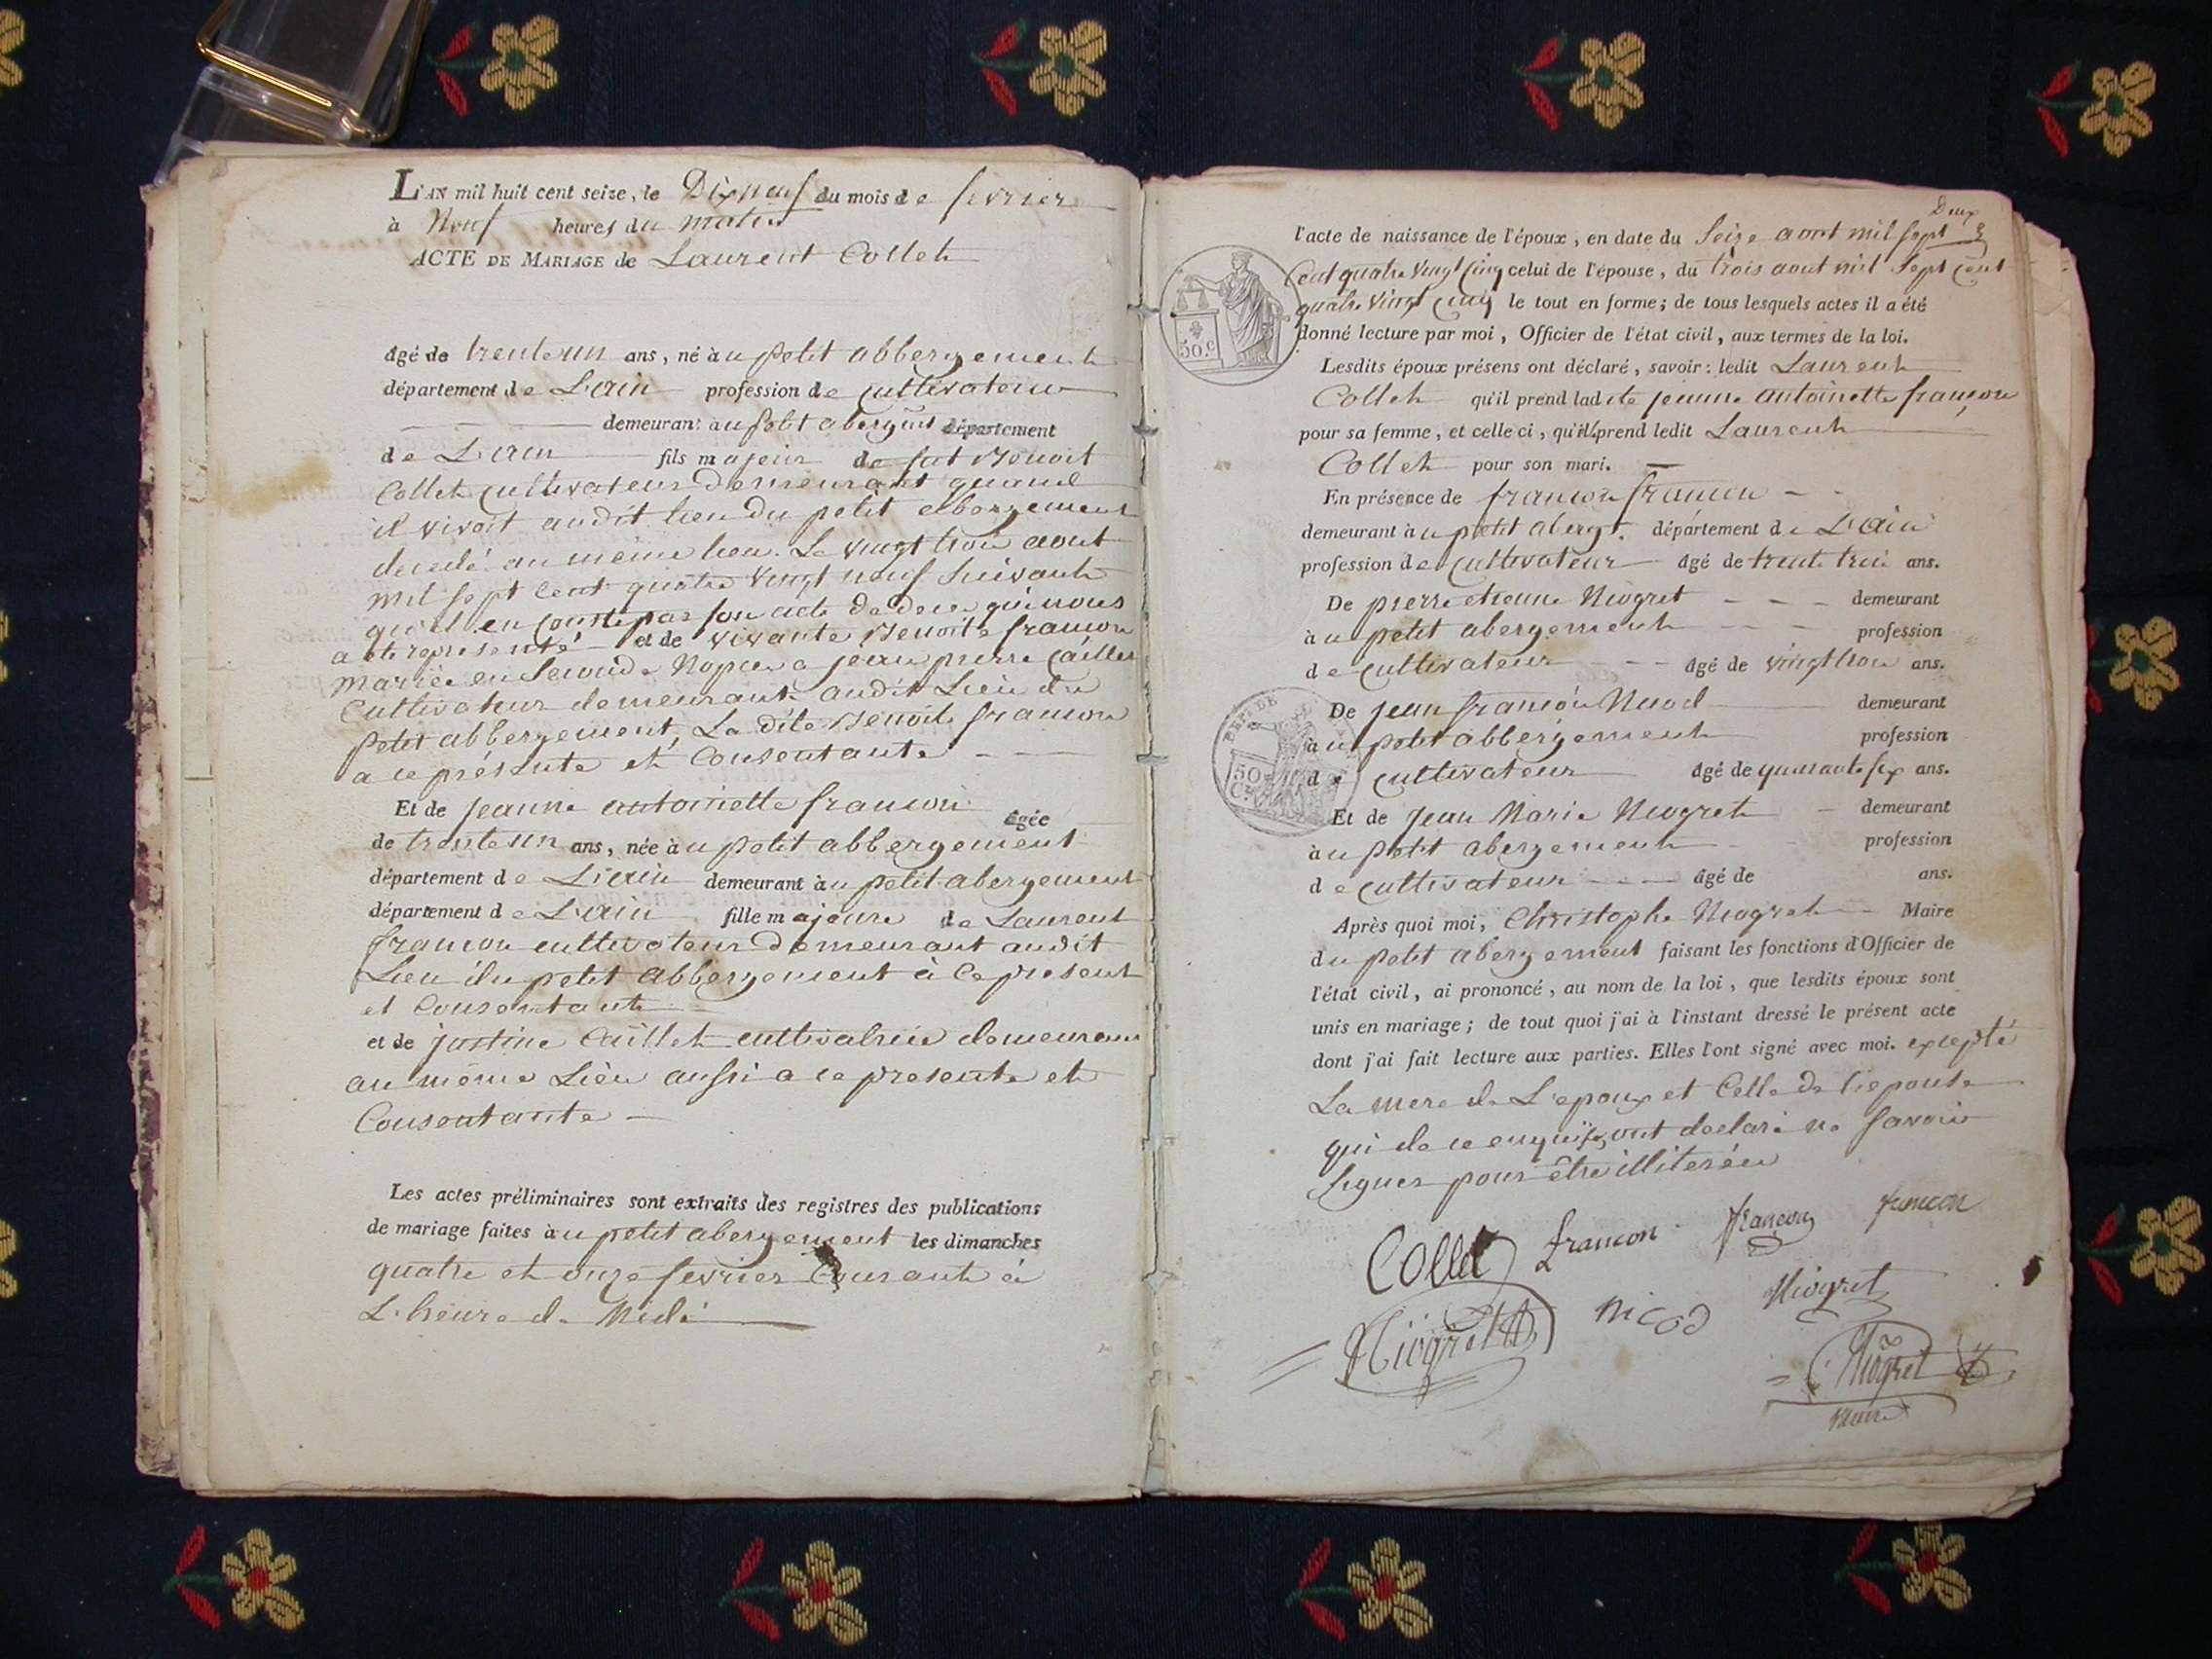 L'AN mil huit cent seize, le Dixneuf du mois de fevrier
à Neuf heures du matin
ACTE DE MARIAGE de Laurent Collet
âgé de trente un ans, né à u petit abbergement
département de L'ain profession de cultivateur
demeurant à u petit abergmt département
de L'ain fils majeur de fut Benoit
Collet cultivateur demeurant quand
il vivoit audit lieu du petit abbergement
decedé au même lieu Le vingt trois aout
mil sept cent quatre vingt neuf suivant
qu'il en conste par son acte de deces qui nous
a été representé et de vivante Benoite francon
mariée en seconde Nopces a jean pierre Caillet
cultivateur demeurant audit Lieu du
petit abbergement, La dite Benoite francon
a ce présente et Consentante
Et de jeanne antoinette francon âgée
de trente un ans, née à u petit abbergement
département de L'ain demeurant à u petit abergement
département de L'ain fille majeure de Laurent
francon cultivateur demeurant audit
Lieu du petit abbergement à ce present
et Consentant
et de justine Caillet cultivatrice demeurant
au même Lieu aussi a ce presente et
Consentante
Les actes préliminaires sont extraits des registres des publications
de mariage faites à u petit abergement les dimanches
quatre et onze fevrier Courant à
L'heure de Midi
Deux
l'acte de naissance de l'époux, en date du Seize aout mil sept
Cent quatre vingt cinq celui de l'épouse, du trois aout mil sept cent
quatre vingt cinq le tout en forme; de tous lesquels actes il a été
donné lecture par moi, Officier de l'état civil, aux termes de la loi.
50.c
Lesdits époux présens ont déclaré, savoir: ledit Laurent
Collet qu'il prend ladite jeanne antoinette françon
pour sa femme, et celle ci, qu'elle prend ledit Laurent
Collet pour son mari.
En présence de françois francon
demeurant à u petit abergt. département de L'ain
profession de cultivateur âgé de trente trois ans.
De pierre etienne Niogret demeurant
à u petit abergement profession
de cultivateur âgé de vingt trois ans.
De jean françois Nicod demeurant
à u petit abbergement profession
de cultivateur âgé de quarante six ans.
DEPT. DE
50 C.
Et de Jean Marie Niogret demeurant
à u petit abergement profession
de cultivateur âgé de ans.
Après quoi moi, Christophe Niogret Maire
du petit abergement faisant les fonctions d'Officier de
l'état civil, ai prononcé, au nom de la loi, que lesdits époux sont
unis en mariage; de tout quoi j'ai à l'instant dressé le présent acte
dont j'ai fait lecture aux parties. Elles l'ont signé avec moi. excepté
La mere de L'epoux et Celle de l'epouse
qui de ce enquises, ont declaré ne savoir
signer pour être illiterées
Collet francon françon francon
Niogret Nicod Niogret
Niogret
maire